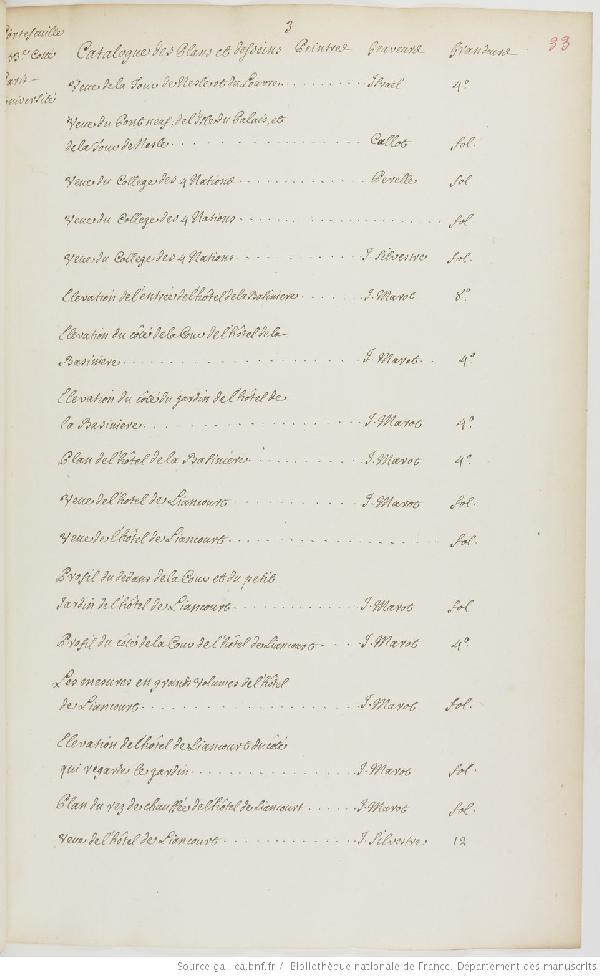 3
33
Portefeuille
Paris
université
Catalogue des Plans et desseins Peintres Graveurs Grandeurs
Veue de la Tour de Nesle et du Louvre Israel 4°
Veue du Pont neuf, de l'Isle du Palais, et
de la Tour de Nesle Callot fol.
Veue du College des 4 Nations Perelle fol
Veue du College des 4 Nations fol
Veue du College des 4 Nations J. Silvestre fol.
Elevation de l'entrée de l'hôtel de la Basiniere J. Marot 8°
Elevation du côté de la Cour de l'hôtel de la
Basiniere J. Marot 4°
Elevation du côté du jardin de l'hôtel de
la Basiniere J. Marot 4°
Plan de l'hôtel de la Basiniere J. Marot 4°
Veue de l'hotel de Liancourt J. Marot fol.
Veue de l'hôtel de Liancourt fol.
Profil du dedans de la Cour et du petit
Jardin de l'hôtel de Liancourt J. Marot fol
Profil du côté de la Cour de l'hôtel de Liancourt J. Marot 4°
Les mesures en grands volumes de l'hôtel
de Liancourt J. Marot fol.
Elevation de l'hôtel de Liancourt du côté
qui regarde le jardin J. Marot fol.
Plan du rez de chaussée de l'hôtel de Liancourt J. Marot fol.
Veue de l'hôtel de Liancourt J. Silvestre 12
Source gallica.bnf.fr / Bibliothèque nationale de France, Département des manuscrits